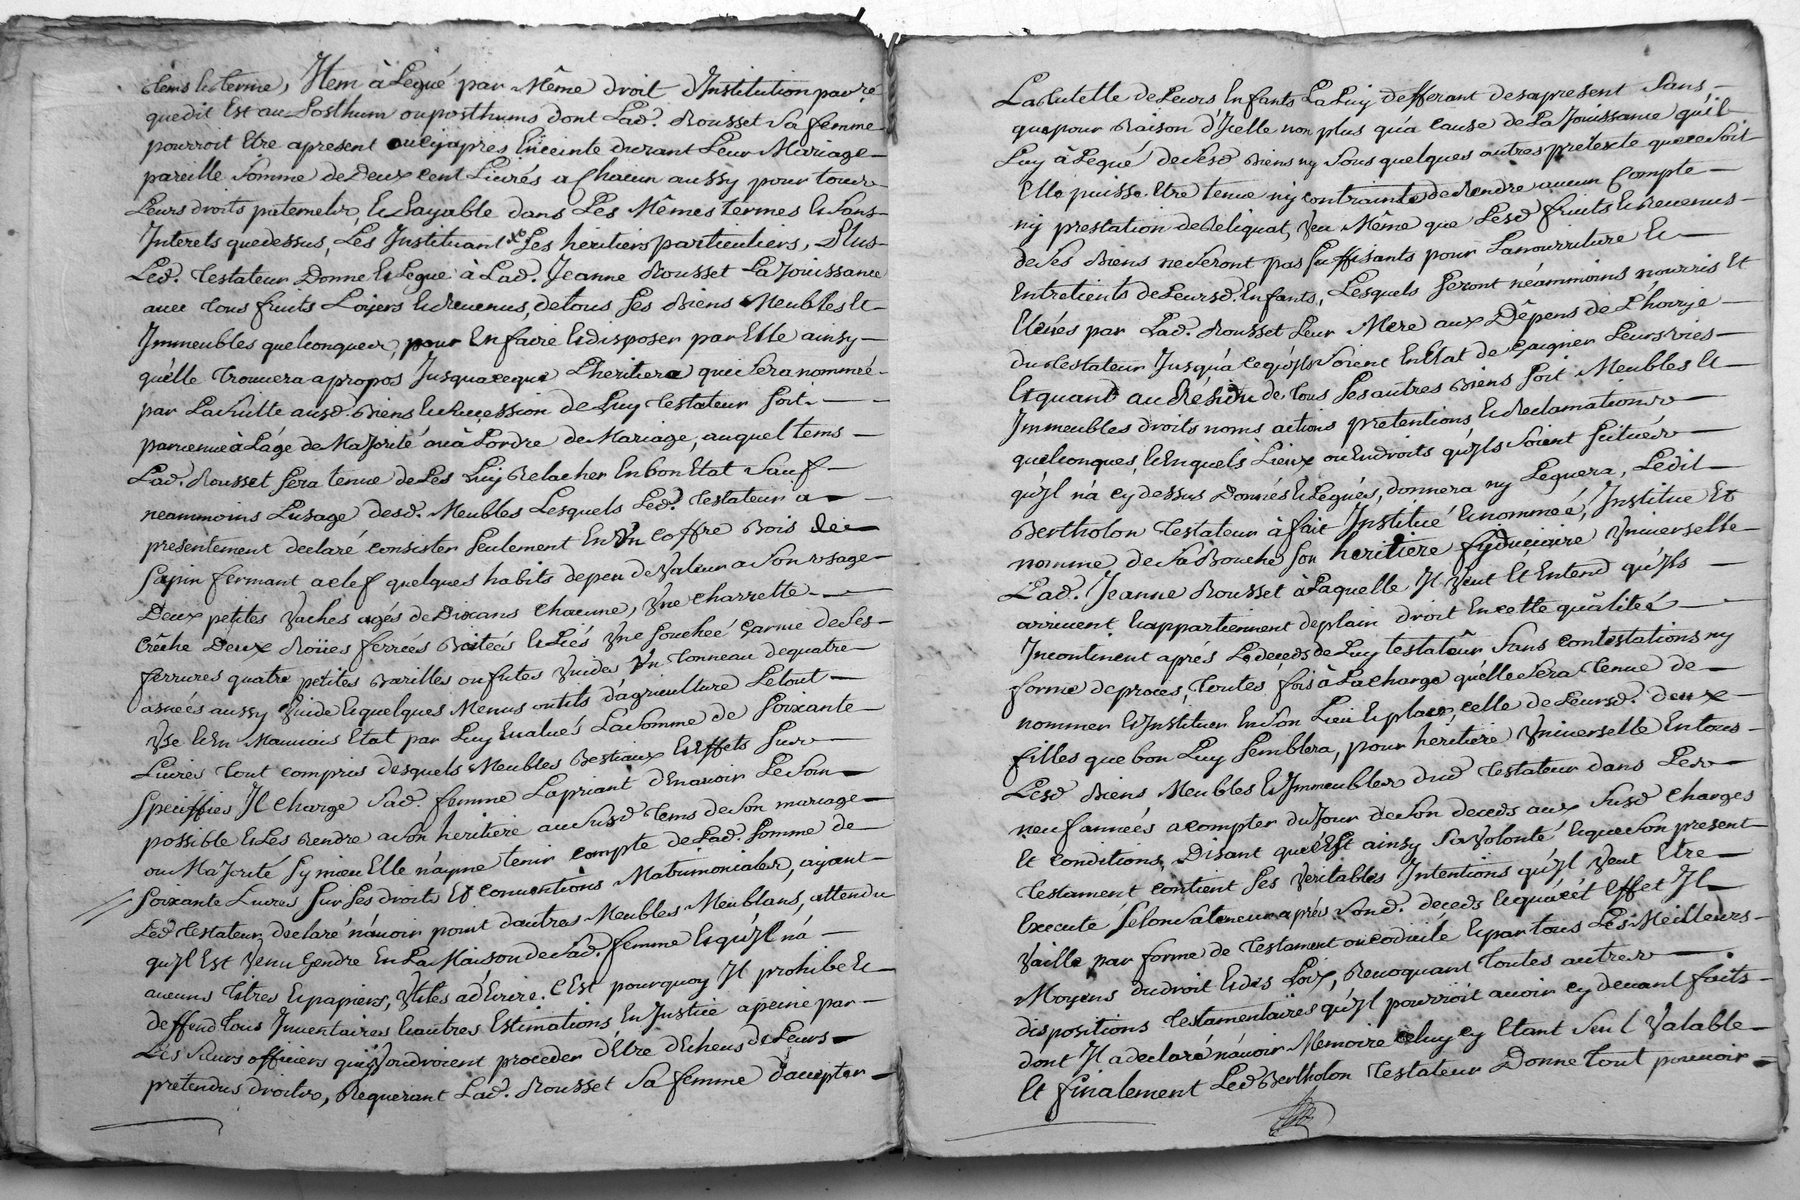 tems & terme, Item à Legué par Même droit d'Institution pavre
que dit Est au Posthum ou posthums dont Lad. Rousset Sa femme
pourroit Etre apresent ou cy apres Enceinte durant Leur Mariage
pareille Somme de Deux cent Livres a Chacun aussy pour tous
Leurs droits paternels, & Payable dans Les Mêmes termes & Sans
Interets que dessus, Les Instituant Ses héritiers particuliers, Plus
Led. Testateur Donne & Legue à Lad. Jeanne Rousset La Jouissance
avec tous fruits Loyers & Revenus, de tous Ses Biens Meubles Et
Immeubles quelconques, pour En faire & disposer par Elle ainsy
qu'elle trouvera apropos Jusqu'aceque L'heritiere qui Sera nommée
par La Suitte ausd. Biens & Succession de Luy Testateur Soit
parvenue à L'age de Majorité ou à L'ordre de Mariage, auquel tems
Lad. Rousset Sera tenue de Les Luy Relacher En bon Etat Sauf
neammoins L'usage desd. Meubles Lesquels Led. Testateur a
presentement declaré consister Seulement En Un coffre Bois de
Sapin fermant a clef quelques habits de peu de Valeur a Son Usage
Deux petites Vaches agés de Dix ans chacune, Une Charrette
Crêche Deux Roües ferrées Boitées & Liés Une Souchée garnie de Ses
ferrures quatre petites Barilles ou futes Vuides Un Tonneau de quatre
asnées aussy Vuide & quelques Menus outils d'agriculture Le tout
Usé & En Mauvais Etat par Luy Evalués La Somme de Soixante
Livres tout compris desquels Meubles Bestiaux & Effets Sus
Speciffies Il Charge Sad. femme La priant d'En avoir Le Soin
possible & Les Rendre a Son heritiere au Susd. Tems de Son mariage
ou Majorité Sy mieu Elle n'ayme tenir compte de Lad. Somme de
Soixante Livres Sur Ses droits Et conventions Matrimoniales, ajant
Led Testateur declaré n'avoir point d'autres Meubles Meublans, attendu
qu'Il Est Venu Gendre En La Maison de Sad. femme & qu'Il n'a
aucuns titres & papiers, Utiles a d'Ecrire. C'Est pourquoy Il prohibe Et
deffend tous Inventaires & autres Estimations En Justice a peine par
Les Sieurs officiers qui Voudroient proceder d'Etre dêcheus de Leurs
pretendus droits, Requerant Lad. Rousset Sa femme d'accepter
La tutelle de Leurs Enfants La Luy defferant des apresent Sans
que pour Raison d'Icelle non plus qu'a cause de La Jouissance qu'il
Luy à Legué de Sesd Biens ny Sous quelques autres pretexte que ce Soit
Elle puisse Etre tenue ny contrainte de Rendre aucun Compte
ny prestation de Reliquat, Veu Même que Lesd fruits & Revenus
de Ses Biens ne Seront pas Suffisants pour La nourriture &
Entretients de Leursd. Enfants, Lesquels Seront néammoins nourris Et
Elevés par Lad. Rousset Leur Mere aux Dêpens de L'hoirye
du Testateur Jusqu'a cequ'Ils Soient En Etat de Gaigner Leurs vies
Et quant au Résidu de tous Ses autres Biens Soit Meubles Et
Immeubles droits noms actions pretentions, & Reclamations
quelconques, & En quels Lieux ou Endroits qu'Ils Soient Scitués
qu'Il n'a cy dessus Donnés & Legués, donnera ny Leguera, Ledit
Bertholon Testateur à fait Institué & nommeé, Institue Et
nomme de Sa Bouche Son heritiere fiduciaire Universelle
Lad. Jeanne Rousset à Laquelle Il Veut Et Entend qu'Ils
arrivent & appartiennent de plain droit En cette quâliteé
Incontinent aprés Le deceds de Luy testatûr Sans contestations ny
forme de procés, toutes fois à La charge qu'elle Sera tenue de
nommer & Instituer En Son Lieu & place celle de Leursd. deux
filles que bon Luy Semblera, pour héritiere Universelle En tous
Lesd Biens Meubles & Immeubles dud Testateur dans Les
neuf années a compter du Jour de Son deceds aux Susd Charges
Et conditions, Disant que C'Est ainsy Sa Volonté & que Son present
Testament contient Ses Veritables Intentions qu'Il Veut Etre
Executé Selon Sa teneur aprés Sond. deceds & qu'a cet Effet Il
Vaille par forme de Testament ou codicile & par tous Les Meilleurs
Moyens du droit & des Loix, Revoquant toutes autres
dispositions Testamentaires qu'Il pourroit avoir cy devant faits
dont Il a declaré n'avoir Memoire celuy cy Etant Seul Valable
Et finalement Led Bertholon Testateur Donne tout pouvoir